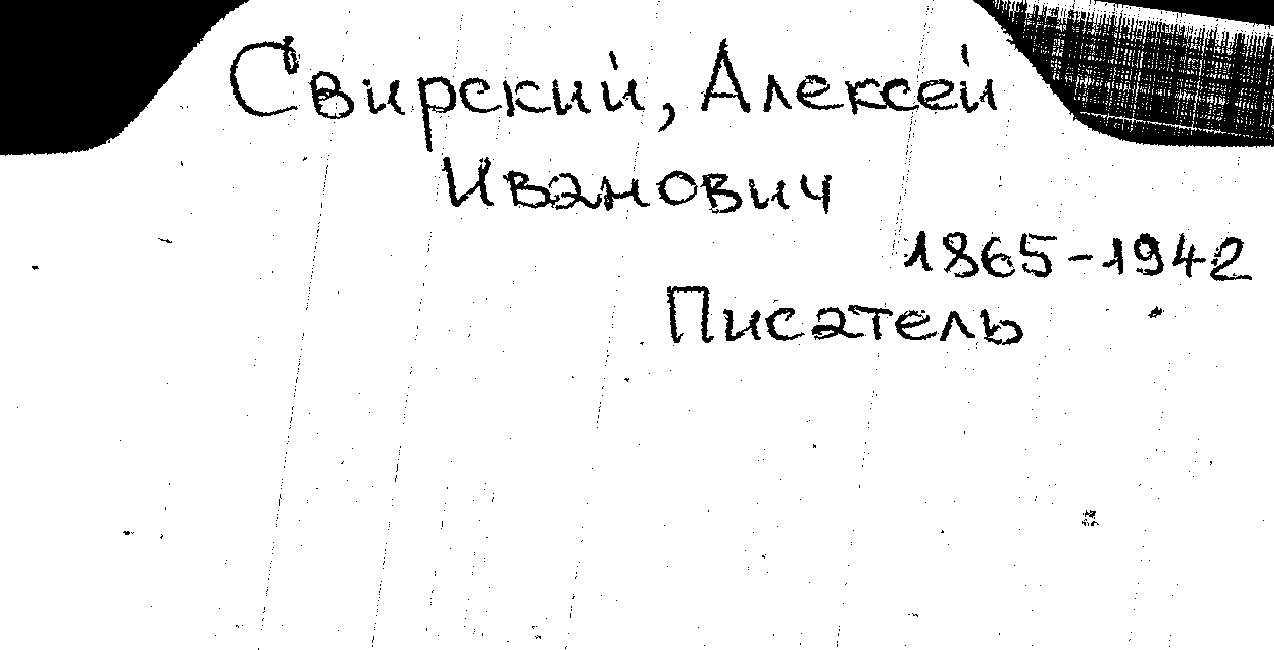 Свирский, Алексей
Иванович
1865-1942
Писатель